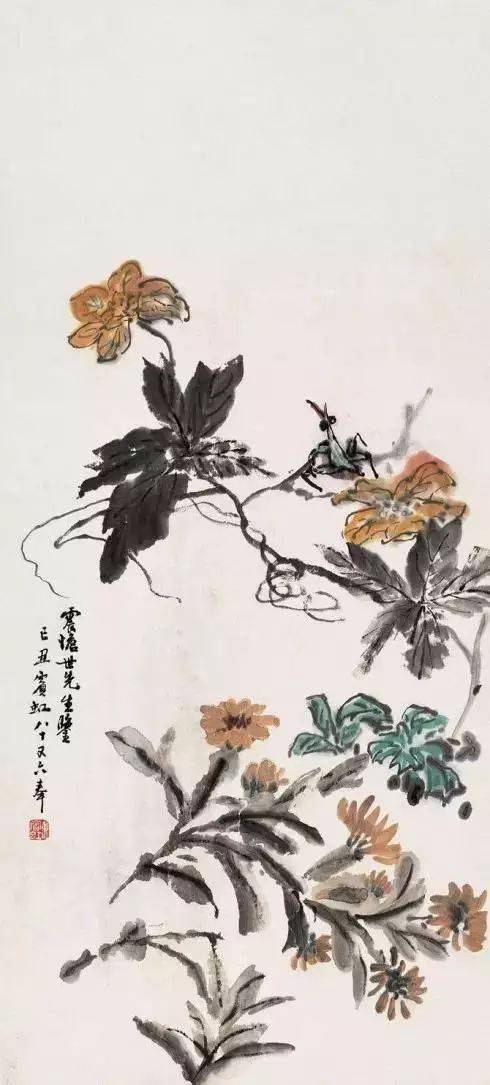 震塘世先生鑒
己丑賓虹八十又六奉